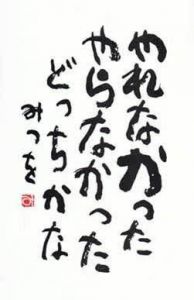 やれなかった
やらなかった
どっちかな
みつを